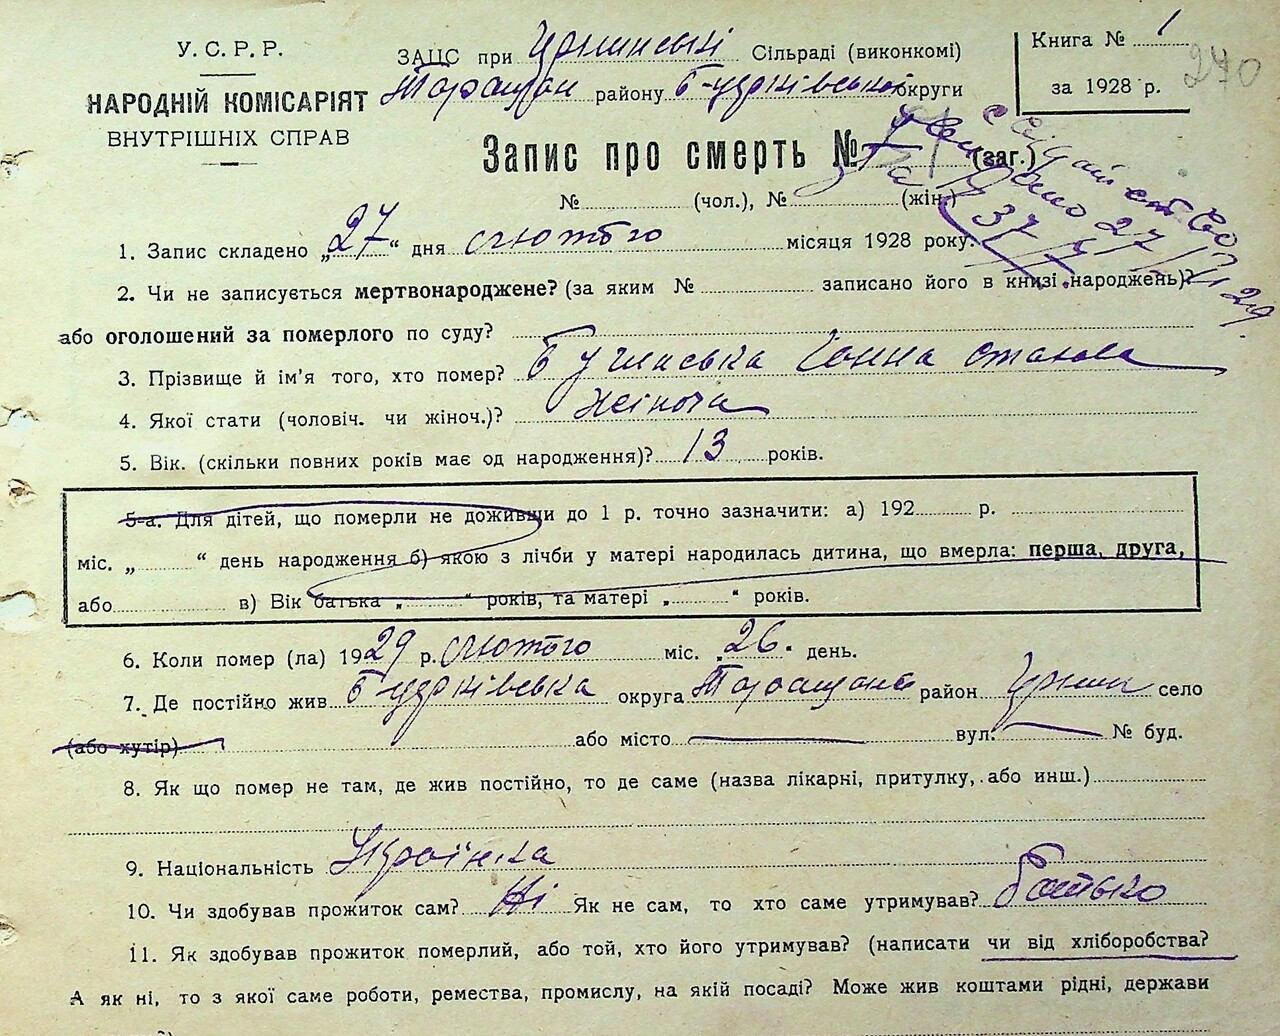 У. С. Р. Р.
НАРОДНІЙ КОМІСАРІЯТ
ВНУТРІШНІХ СПРАВ
ЗАЦС при Сільраді (виконкомі)
Таращан району округи
Книга № 1
за 1928 р.
270
Запис про смерть № (заг.)
№ (чол.), № (жін.)
1. Запис складено „27“ дня лютого місяця 1928 року.
2. Чи не записується мертвонароджене? (за яким № записано його в книзі народжень)?
або оголошений за померлого по суду?
3. Прізвище й ім'я того, хто помер?
4. Якої стати (чоловіч. чи жіноч.)? Жіноча
5. Вік. (скільки повних років має од народження)? 13 років.
5-а. Для дітей, що померли не доживши до 1 р. точно зазначити: а) 192 р.
міс. „ “ день народження б) якою з лічби у матері народилась дитина, що вмерла: перша, друга,
або в) Вік батька „ “ років, та матері „ “ років.
6. Коли помер (ла) 1929 р. лютого міс. „26“ день.
7. Де постійно жив округа район село
(або хутір) або місто вул. № буд.
8. Як що помер не там, де жив постійно, то де саме (назва лікарні, притулку, або инш.)
9. Національність Українка
10. Чи здобував прожиток сам? Ні Як не сам, то хто саме утримував? Батько
11. Як здобував прожиток померлий, або той, хто його утримував? (написати чи від хліборобства?
А як ні, то з якої саме роботи, ремества, промислу, на якій посаді? Може жив коштами рідні, держави